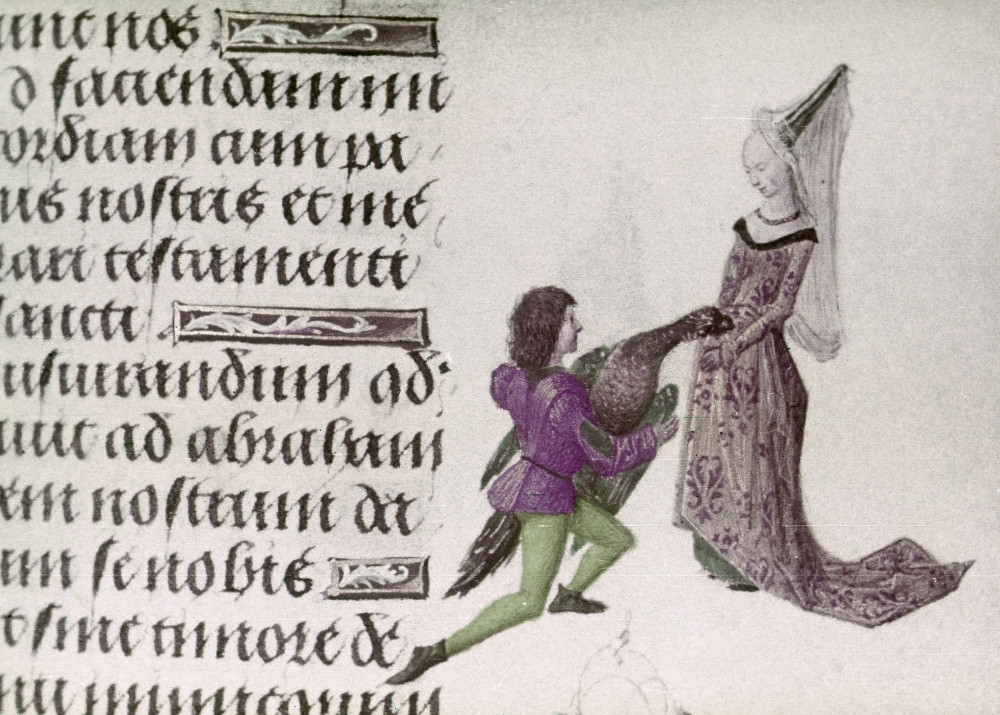 unc nos
d faciendam mi
cordiam cum pa
us nostris et me
rari testamenti
sancti
usiurandum qd
uit ad abraham
em nostrum da
um se nobis
t sine timore de
nu inimicorum